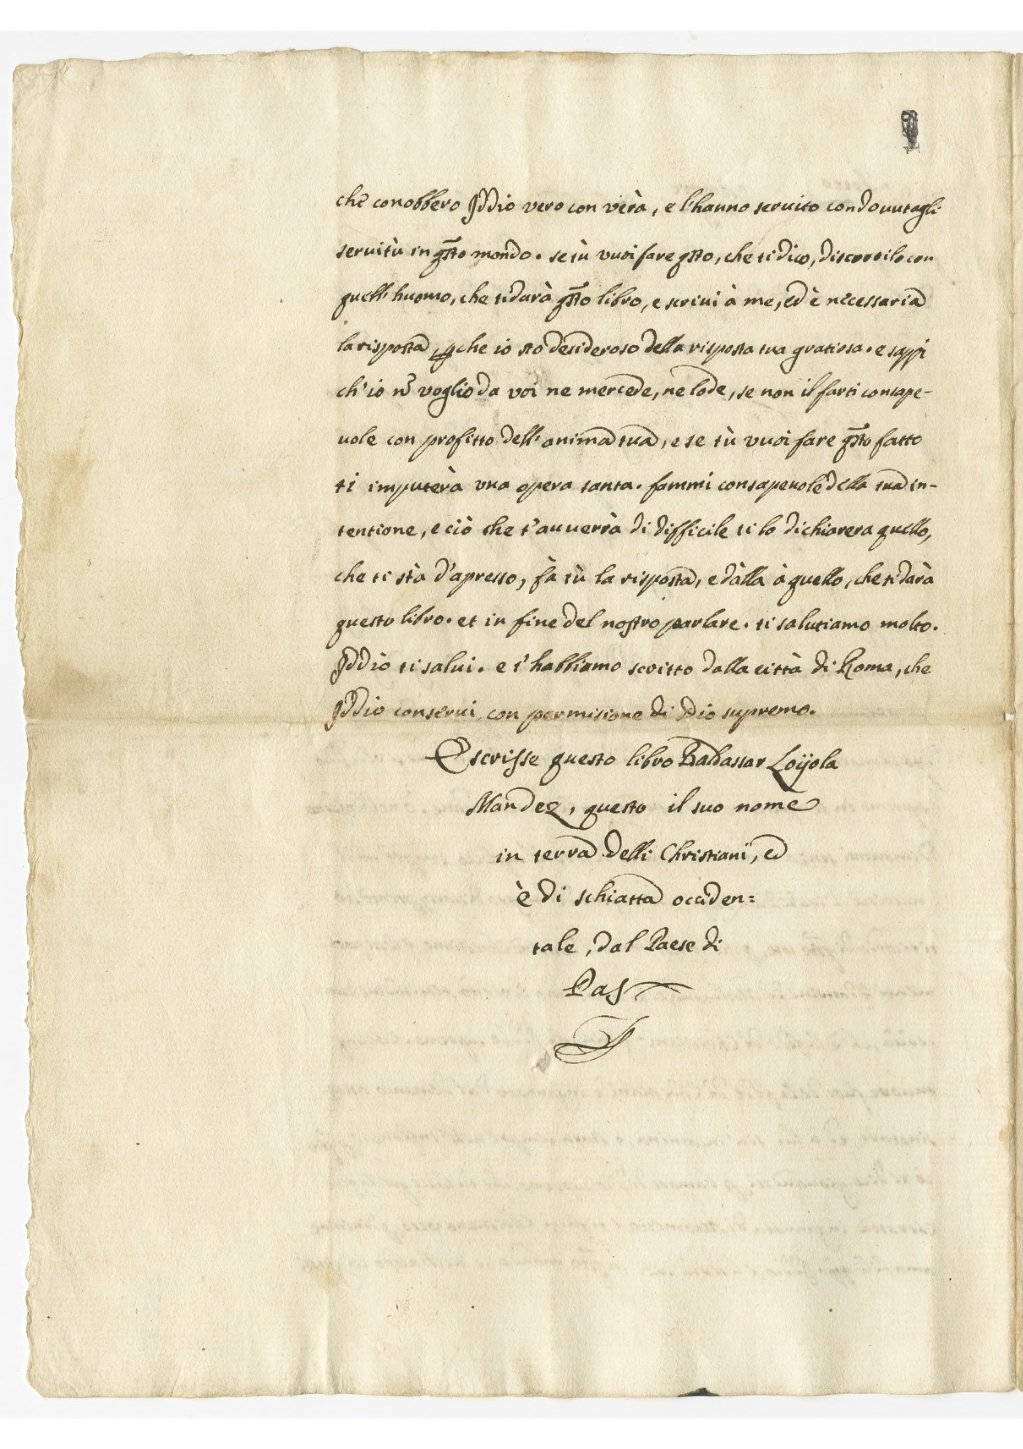 che conobbero Iddio vero con verà, e l'hanno servito con dovutagli
servitù in q̃sto mondo. se tù vuoi fare q̃sto, che ti dico, discorrilo con
quell'huomo, che ti darà q̃sto libro, e scrivi à me, ed è necessaria
la risposta, ꝑche io stò desideroso della risposta tua gratiosa. e sappi
ch'io nõ voglio da voi ne mercede, ne lode, se non il farti consape-
uole con profitto dell'anima tua, e se tù vuoi fare q̃sto fatto
ti imputerà vna opera santa. fammi consapeuole della tua in-
tentione, e ciò che t'auuerrà di difficile ti lo dichiarera quello,
che ti stà d'apresso, fà tù la risposta, e dàlla à quello, che ti darà
questo libro. et in fine del nostro parlare. ti salutiamo molto.
Iddio ti salui. e t'habbiamo scritto dalla città di Roma, che
Iddio conserui, con permisione di Dio supremo.
E scrisse questo libro Baldassar Loijola
Mandez, questo il suo nome
in terra delli Christiani, ed
è di schiatta ociden=
tale, dal Paese di
Fas